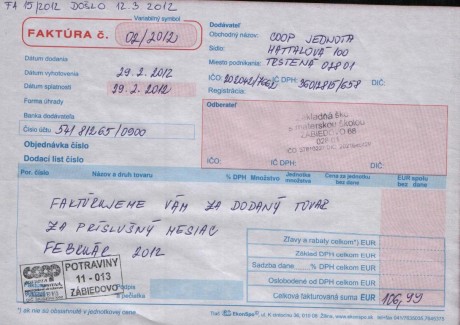 FA 15/2012 DOŠLO 12.3.2012
Variabilný symbol
FAKTÚRA č. 02/2012
Dodávateľ
Obchodné meno: COOP JEDNOTA
Sídlo: HATTALOVÁ 100
Miesto podnikania: TRSTENÁ 02801
IČ DPH:
DIČ:
Registrácia:
Dátum dodania
Dátum vyhotovenia 29.2.2012
Dátum splatnosti 29.2.2012
Forma úhrady
Banka dodávateľa
Číslo účtu 54181265/0900
Odberateľ
Základná ško
s materskou školou
ZÁBIEDOVO 68
IČO: IČ DPH: DIČ:
Objednávka číslo
Dodací list číslo
Por. číslo Názov a druh tovaru % DPH Množstvo Jednotka množstva Cena za jednotku bez dane EUR spolu bez dane
FAKTÚRUJEME VÁM ZA DODANÝ TOVAR
ZA PRÍSLUŠNÝ MESIAC
FEBRUÁR 2012
Zľavy a rabaty celkom*) EUR
Základ DPH celkom EUR
Sadzba dane % DPH celkom EUR
Oslobodené od DPH celkom EUR
Celková fakturovaná suma EUR 106,99
COOP
POTRAVINY
11 - 013
ZÁBIEDOVO
*) ak nie sú obsiahnuté v jednotkovej cene.